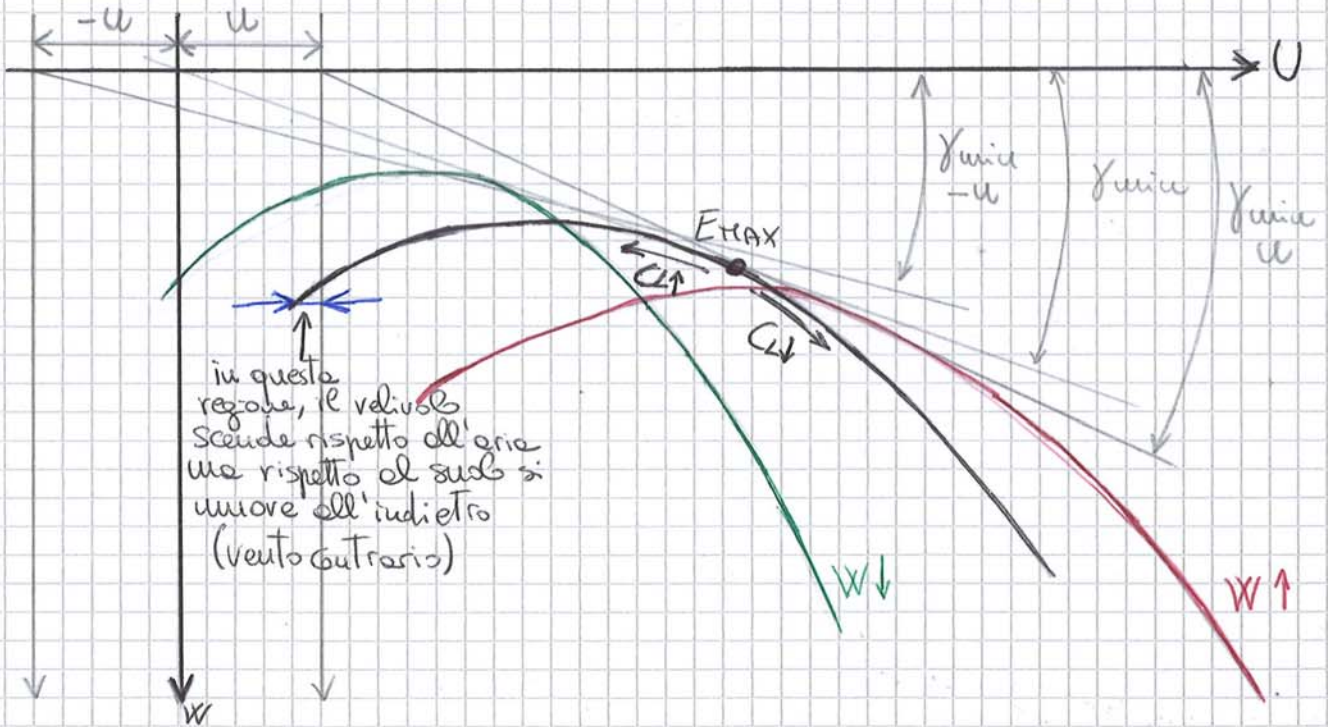 -u
u
U
γmin
-u
γmin
γmin
u
EMAX
CL↑
CL↓
in questa
regione, il velivolo
scende rispetto all'aria
ma rispetto al suolo si
muove all'indietro
(vento contrario)
W↓
W↑
w